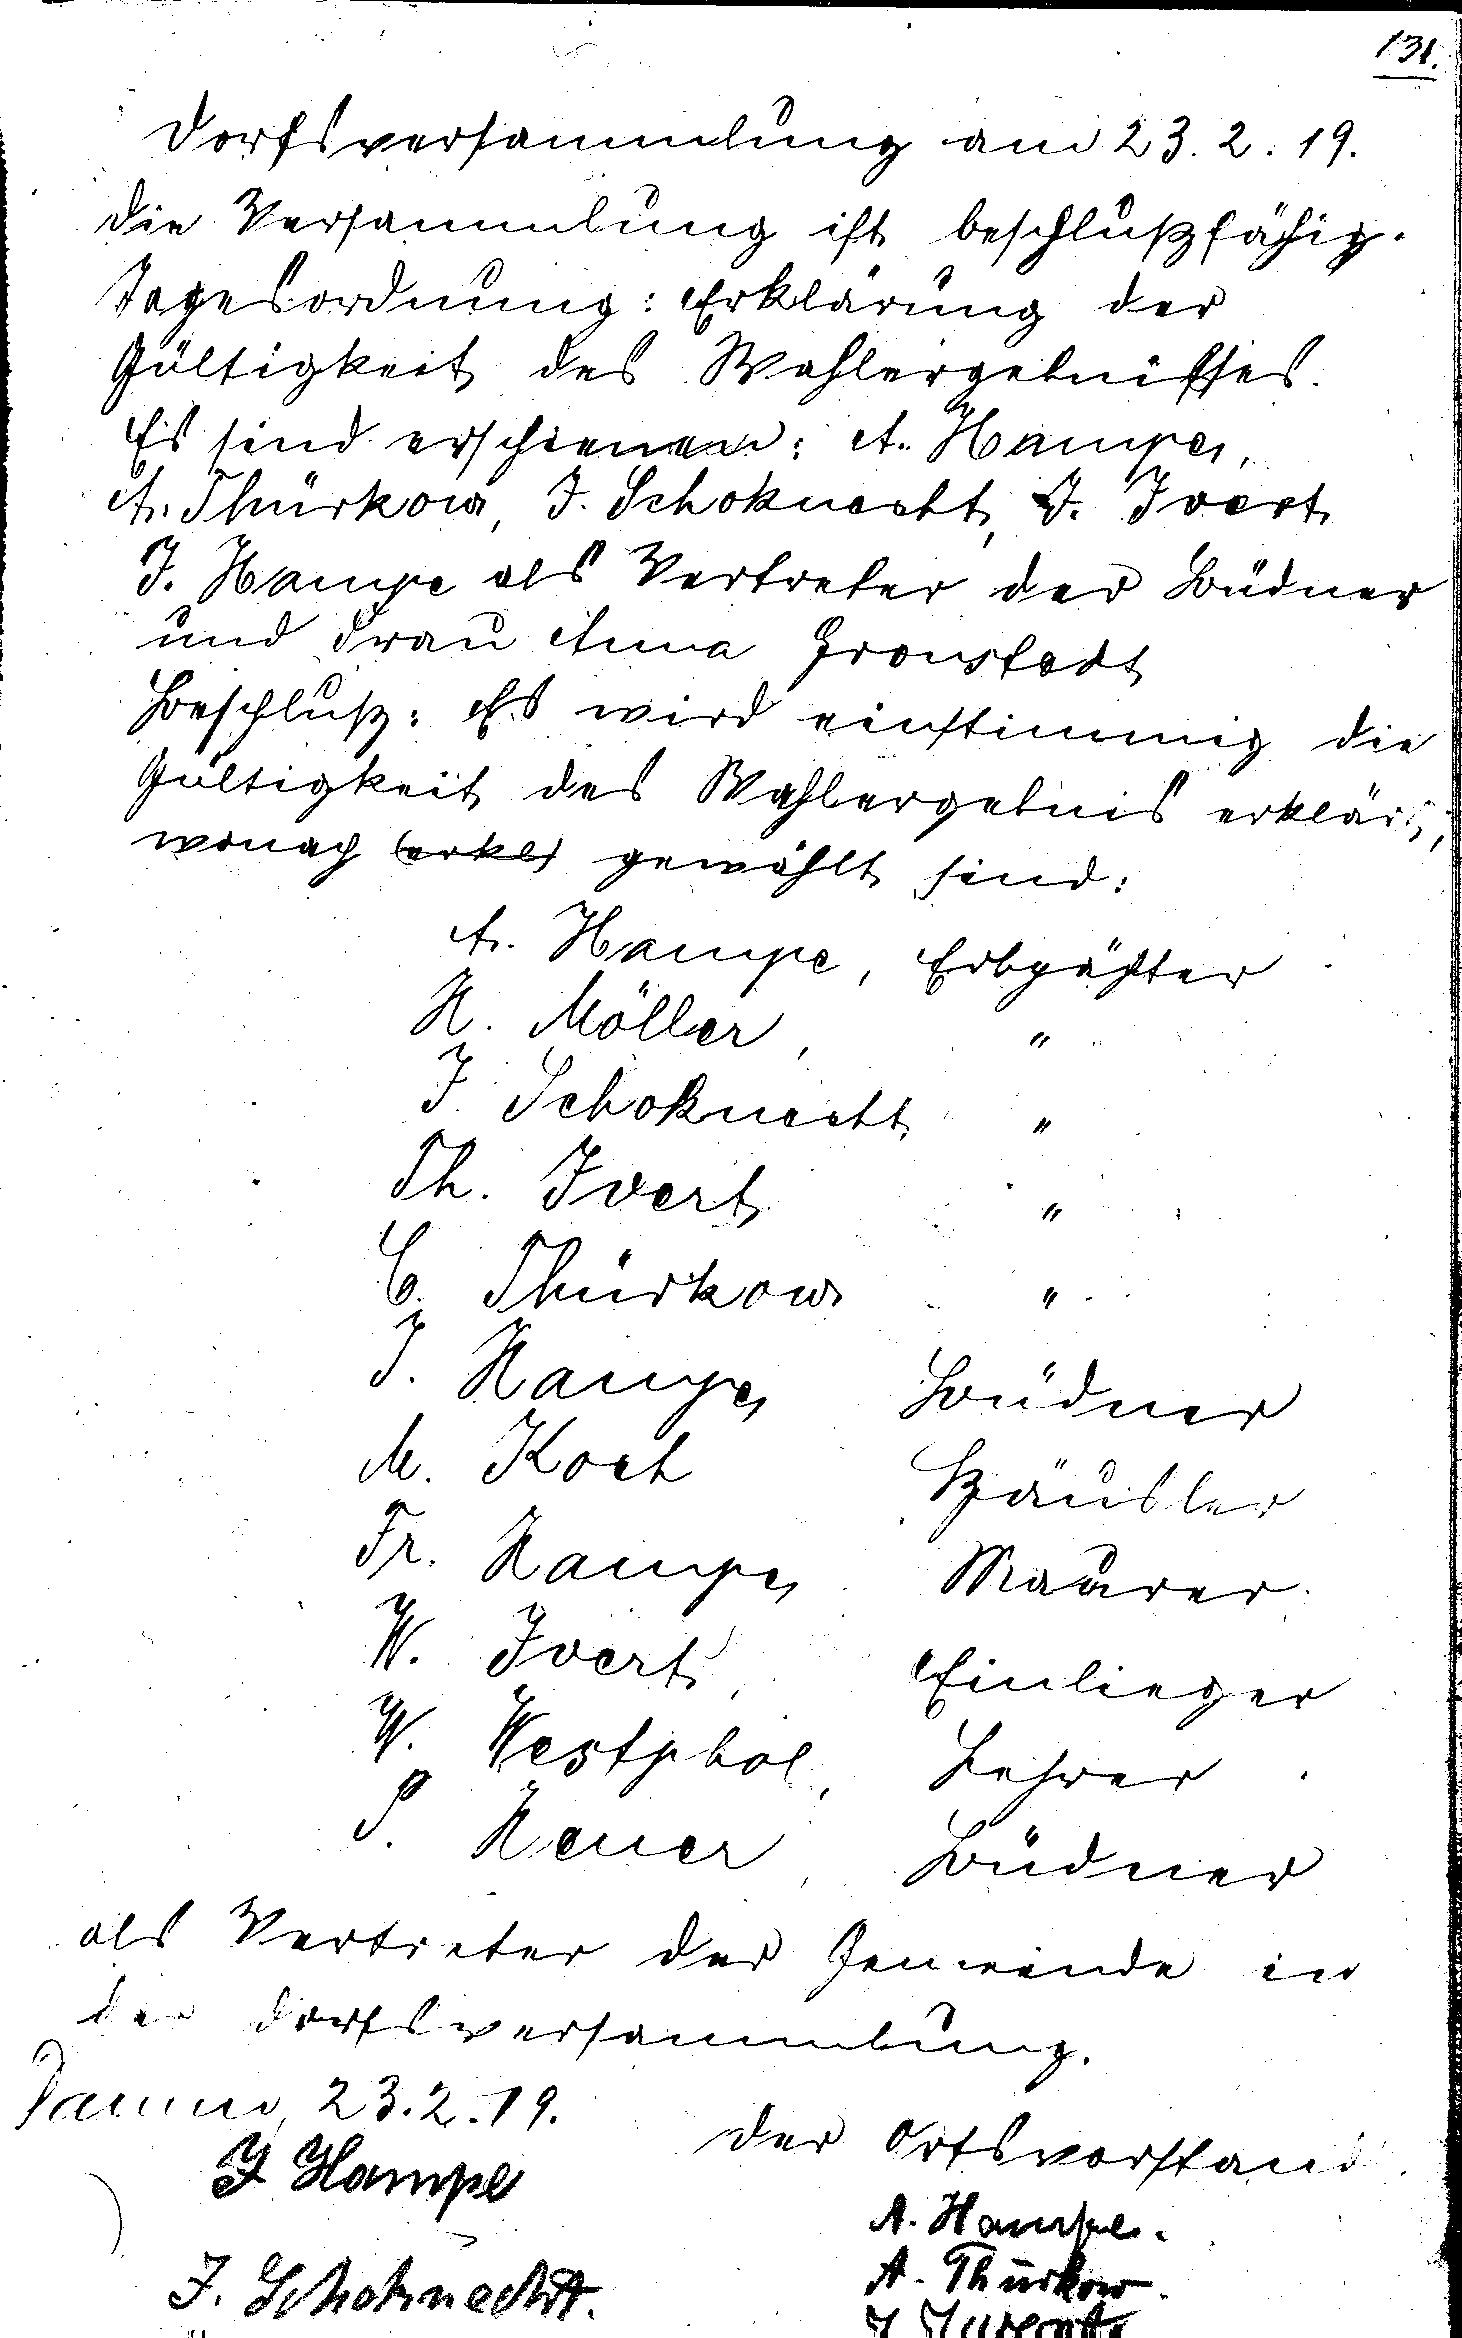 131.
Dorfsversammlung am 23. 2. 19.
Die Versammlung ist beschlußfähig.
Tagesordnung: Erklärung der
Gültigkeit des Wahlergebnisses.
Es sind erschienen: A. Hampe,
A. Thürkow, J. Schoknecht, J. Ivert
J. Hampe als Vertreter der Büdner
und Frau Anna Gronstadt
Beschluß: Es wird einstimmig die
Gültigkeit des Wahlergebnis erklärt,
wonach (erkl) gewählt sind:
A. Hampe, Erbpächter
H. Möller, "
J. Schoknecht, "
Th. Ivert "
C. Thürkow "
J. Hampe, Büdner
M. Koch Häusler
Fr. Hampe, Maurer.
W. Ivert, Einlieger
W. Westphal, Lehrer
P. Heuer, Büdner
als Vertreter der Gemeinde in
der Dorfsversammlung.
Damm, 23.2.19.
Der Ortsvorstand.
J Hampe
A. Hampe.
J. Schoknecht.
A. Thürkow.